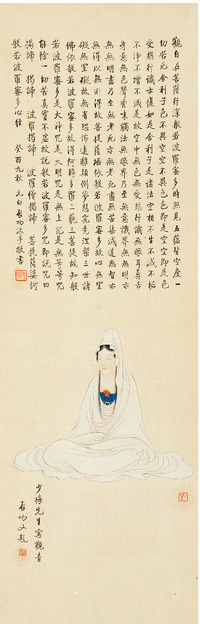 觀自在菩薩行深般若波羅蜜多時照見五蘊皆空度一
切苦厄舍利子色不異空空不異色色即是空空即是色
受想行識亦復如是舍利子是諸法空相不生不滅不垢
不淨不增不減是故空中無色無受想行識無眼耳鼻舌
身意無色聲香味觸法無眼界乃至無意識界無無明亦
無無明盡乃至無老死亦無老死盡無苦集滅道無智亦
無得以無所得故菩提薩埵依般若波羅蜜多故心無罣
礙無罣礙故無有恐怖遠離顛倒夢想究竟涅槃三世諸
佛依般若波羅蜜多故得阿耨多羅三藐三菩提故知般
若波羅蜜多是大神咒是大明咒是無上咒是無等等咒
能除一切苦真實不虛故說般若波羅蜜多咒即說咒曰
揭諦 揭諦 波羅揭諦 波羅僧揭諦 菩提薩婆訶
般若波羅蜜多心經 癸酉九秋 元白啟功沐手敬書
少梅先生寫觀音
啟功又題